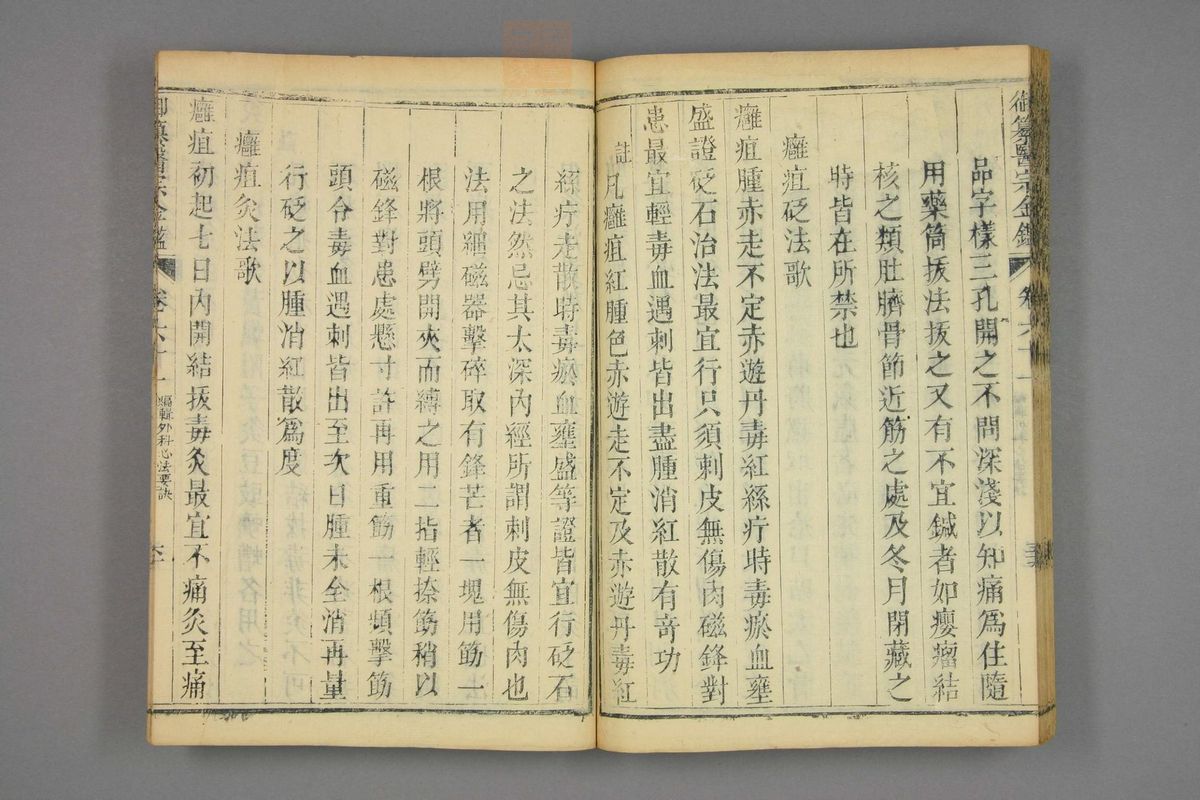 御纂醫宗金鑑 卷六十一
品字樣三孔開之不問深淺以知痛爲住隨
用藥筒拔法拔之又有不宜鍼者如癭瘤結
核之類肚臍骨節近筋之處及冬月閉藏之
時皆在所禁也
癰疽砭法歌
癰疽腫赤走不定赤遊丹毒紅絲疔時毒瘀血壅
盛證砭石治法最宜行只須刺皮無傷肉磁鋒對
患最宜輕毒血遇刺皆出盡腫消紅散有奇功
註凡癰疽紅腫色赤遊走不定及赤遊丹毒紅
絲疔走散時毒瘀血壅盛等證皆宜行砭石
之法然忌其太深內經所謂刺皮無傷肉也
法用細磁器擊碎取有鋒芒者一塊用筯一
根將頭劈開夾而縛之用二指輕捺筯稍以
磁鋒對患處懸寸許再用重筯一根頻擊筯
頭令毒血遇刺皆出至次日腫未全消再量
行砭之以腫消紅散爲度
癰疽灸法歌
癰疽初起七日內開結拔毒灸最宜不痛灸至痛
御纂醫宗金鑑 卷六十一 編輯外科心法要訣